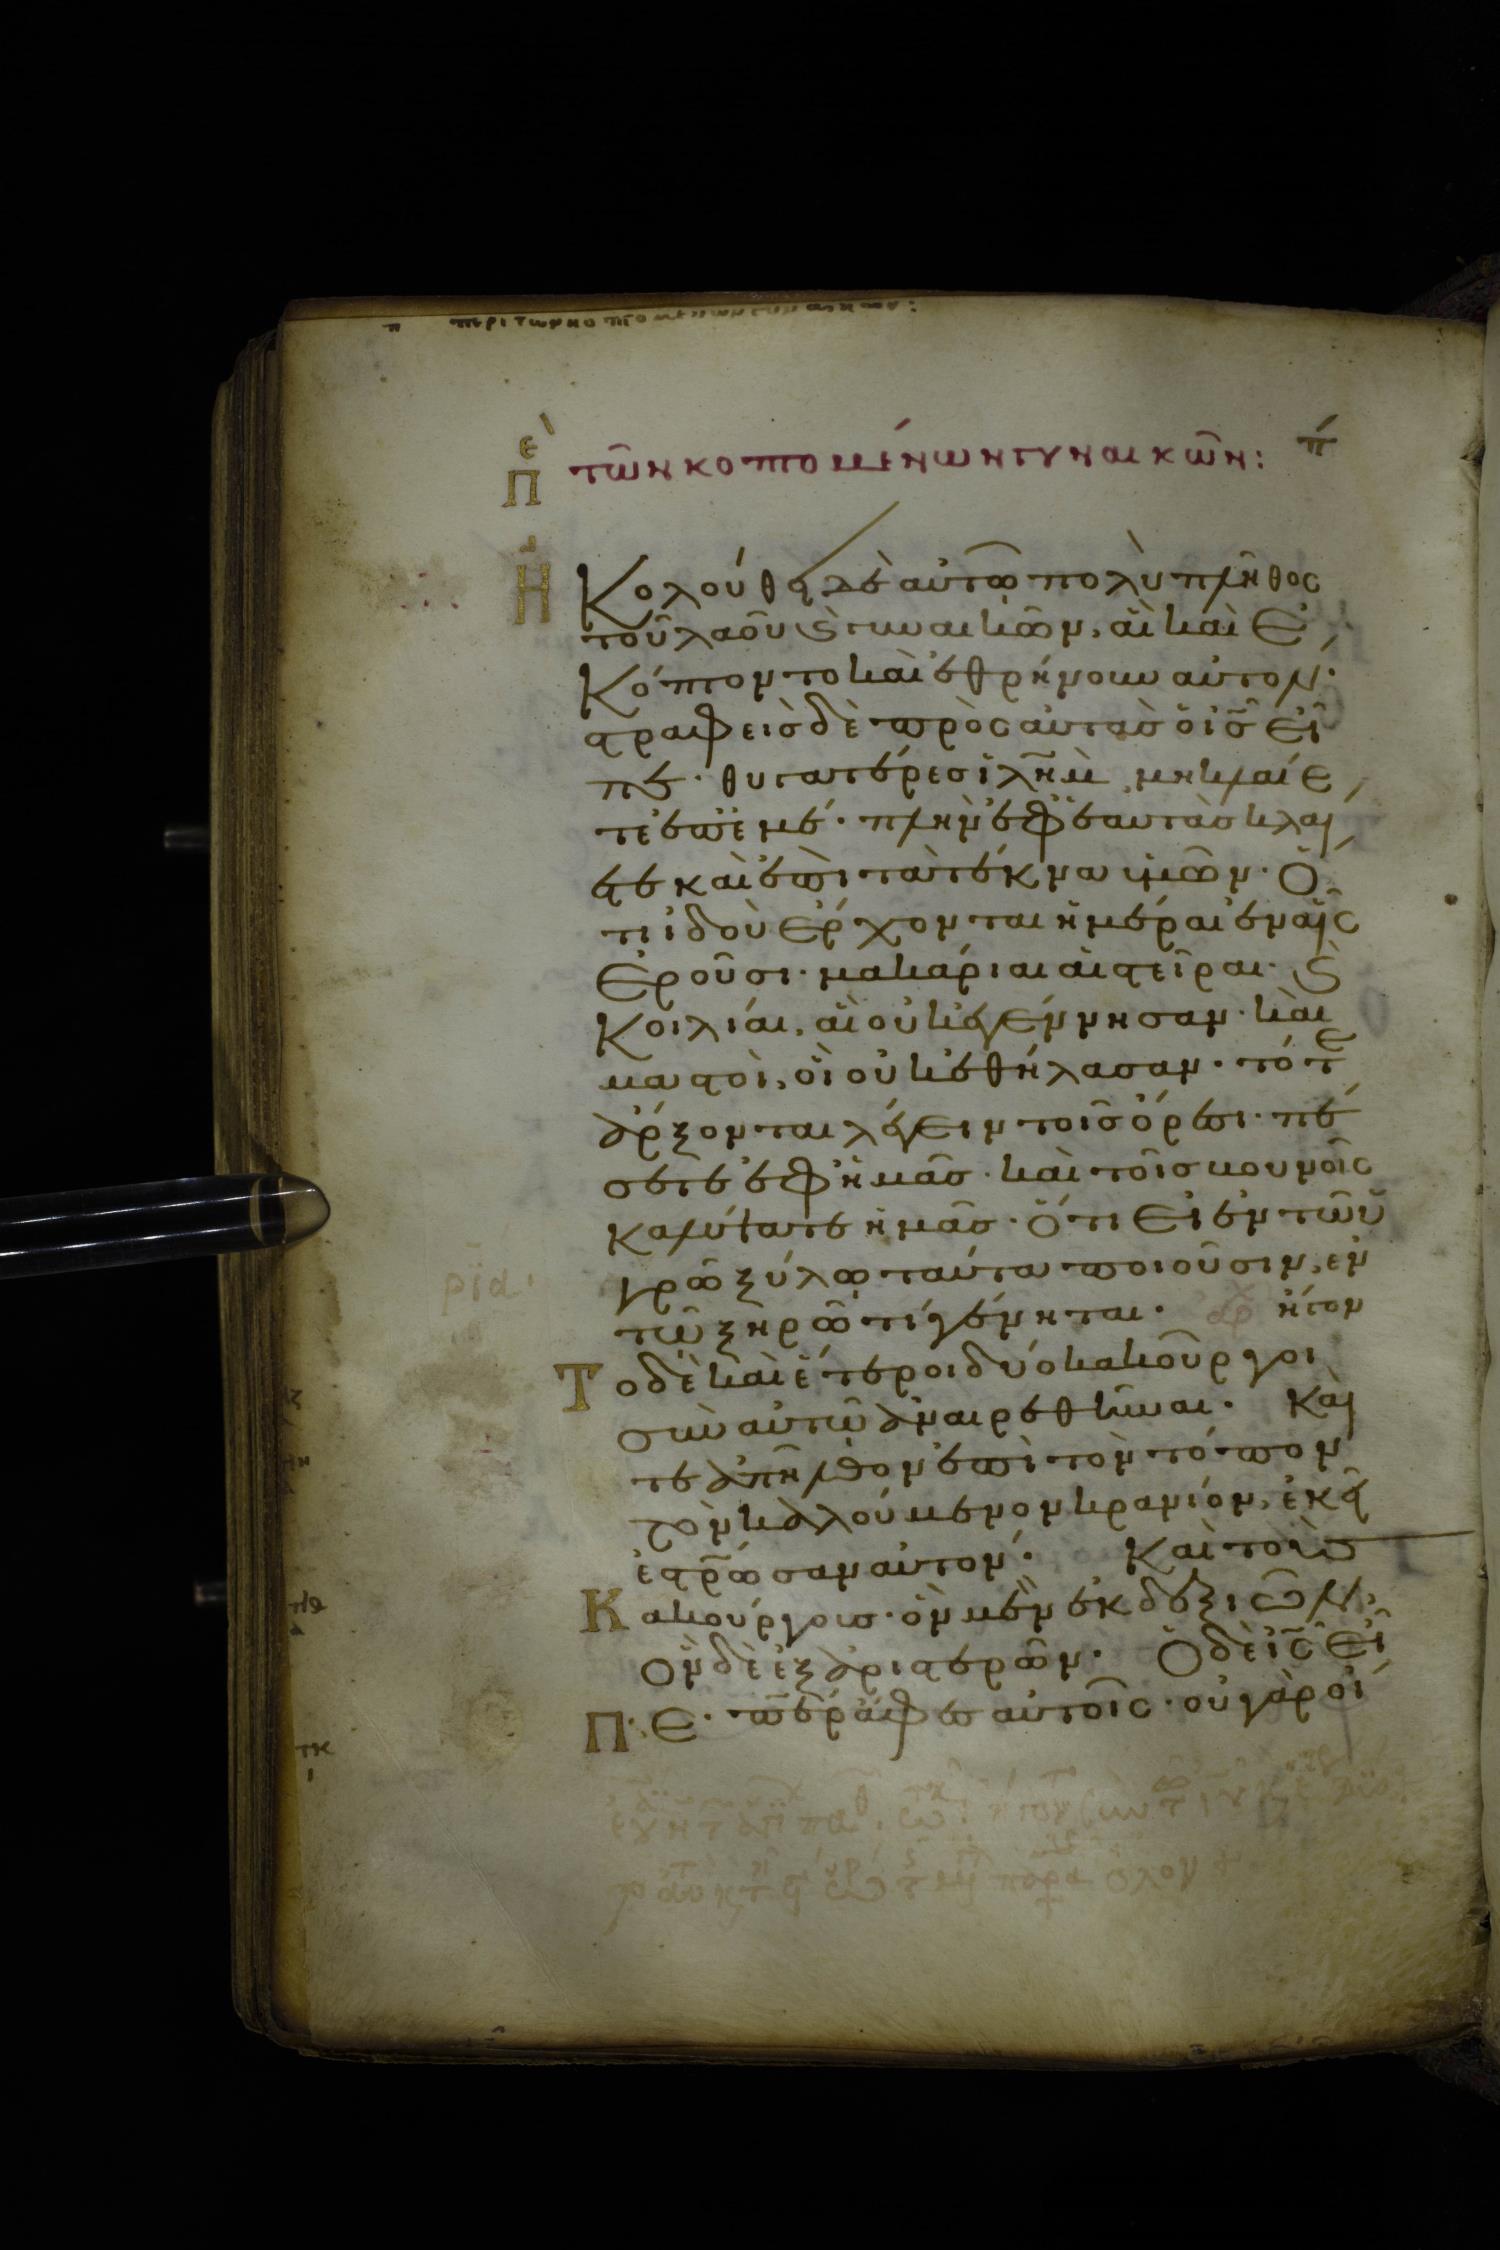 π περὶ τῶν κοπτομένων γυναικῶν:
Πε τῶν κοπτομένων γυναικῶν: π
Ἠκολούθει δὲ αὐτῶ πολὺ πλῆθος
τοῦ λαοῦ ϗ γυναικῶν, αἳ καὶ ἐ
κόπτοντο καὶ ἐθρήνουν αὐτον·
στραφεὶς δὲ πρὸς αὐτὰς ὁ ις εἶ
πε· θυγατέρες ιλημ, μὴ κλαίε
τε ἐπ' ἐμέ· πλὴν ἐφ' ἑαυτὰς κλαί
ετε καὶ ἐπὶ τὰ τέκνα ὑμῶν· ὅ
τι ἰδοὺ ἔρχονται ἡμέραι ἐν αἷς
ἐροῦσι· μακάριαι αἱ στεῖραι· ϗ
κοιλίαι, αἳ οὐκ ἐγέννησαν· καὶ
μαστοὶ, οἳ οὐκ ἐθήλασαν· τότε
ἄρξονται λέγειν τοῖς ὄρεσι· πέ
σετε ἐφ' ἡμᾶς· καὶ τοῖς βουνοῖς
καλύψατε ἡμᾶς· ὅτι εἰ ἐν τῶ ὑ
γρῶ ξύλω ταῦτα ποιοῦσιν, ἐν
ριδ
τῶ ξηρῶ τί γένηται· αρχ ἤγον
Το δὲ καὶ ἕτεροι δύο κακοῦργοι
σὺν αὐτῶ ἀναιρεθῆναι· Καὶ ὅ
τε ἀπῆλθον ἐπὶ τὸν τόπον
τὸν καλούμενον κρανίον, ἐκεῖ
ἐσταύρωσαν αὐτον· Καὶ τοὺς
Κακούργους· ὃν μὲν ἐκ δεξιῶν,
ὃν δὲ ἐξ ἀριστερῶν· Ὁ δὲ ις εἶ
Πε· περ ἄφες αὐτοῖς· οὐ γὰρ οἴ